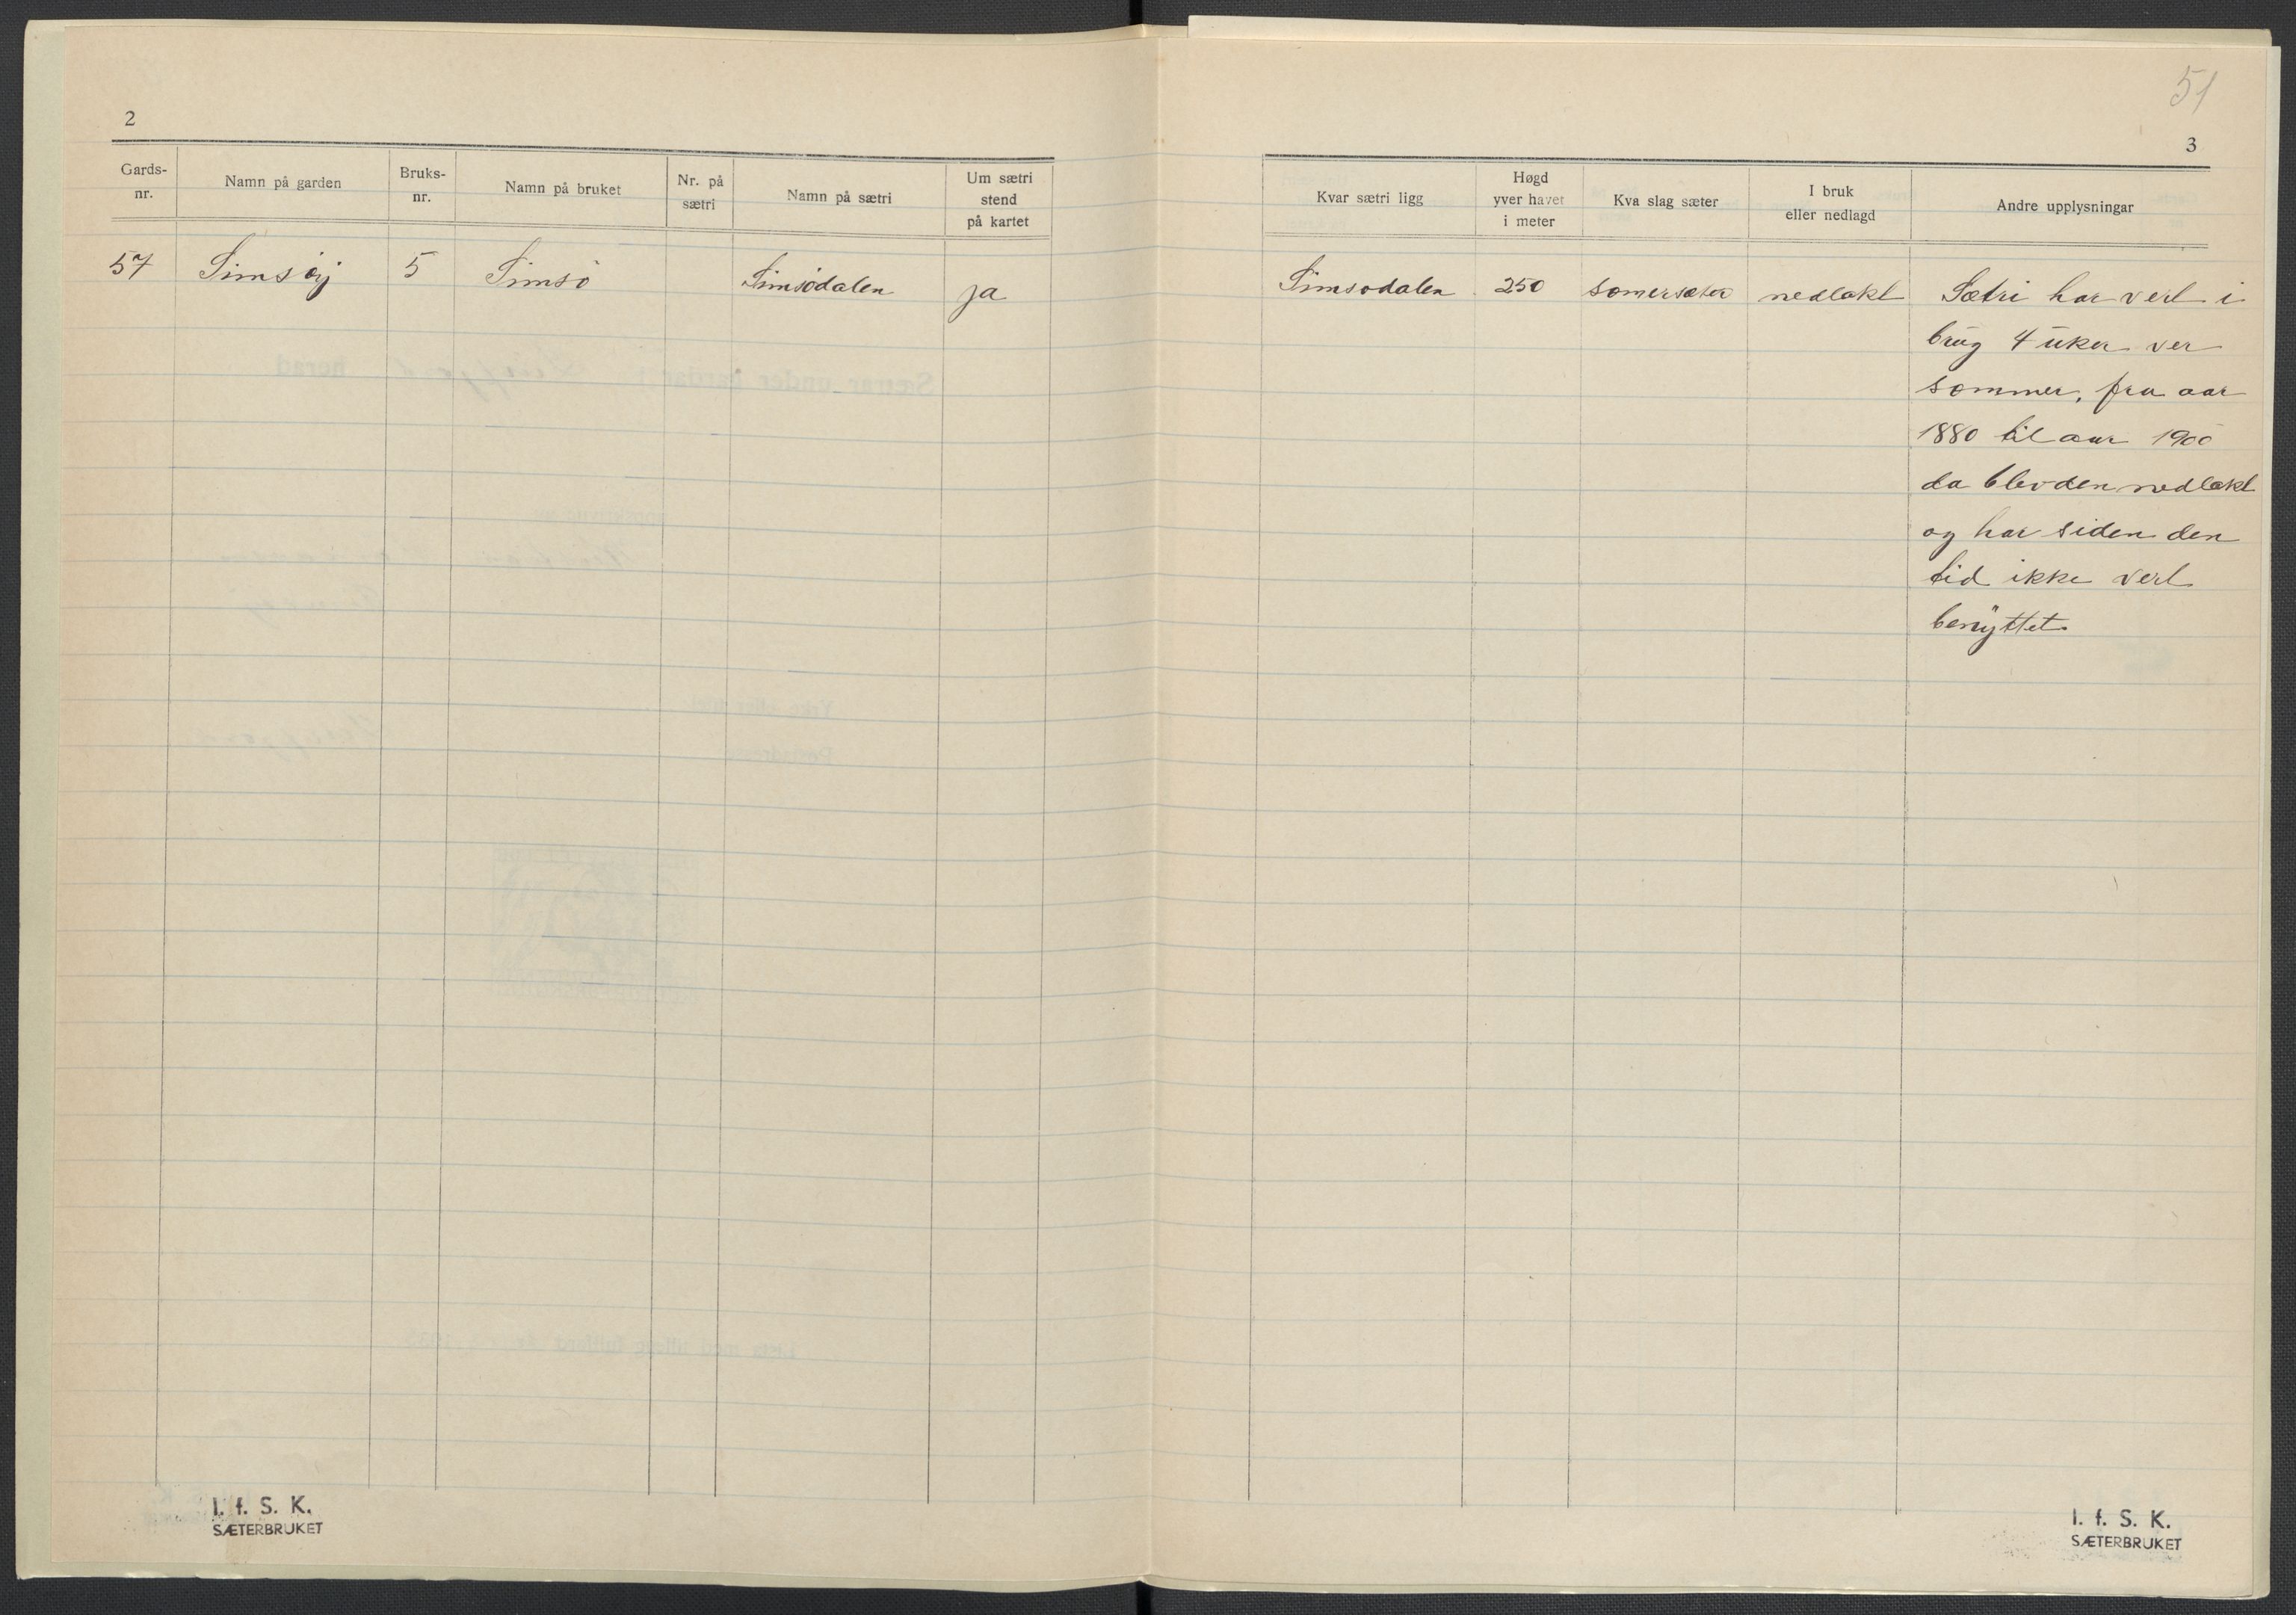 51
2
3
Gards-
nr.
Namn på garden
Bruks-
nr.
Namn på bruket
Nr. på
sætri
Namn på sætri
Um sætri
stend
på kartet
Kvar sætri ligg
Høgd
yver havet
i meter
Kva slag sæter
I bruk
eller nedlagd
Andre upplysningar
57 Simsöij 5 Simsö Simsödalen ja Simsodalen 250 somersæter nedlakt Sætri har vert i
brug 4 uker ver
sommer, fra aar
1880 til aar 1900
da blev den nedlakt
og har siden den
tid ikke vert
benyttet
I. f. S. K.
SÆTERBRUKET
I. f. S. K.
SÆTERBRUKET